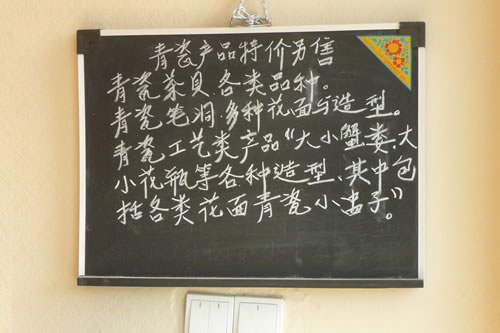 青瓷产品特价另售
青瓷茶具.各类品种。
青瓷笔洞.多种花面与造型。
青瓷工艺类产品“大小蟹娄.大
小花瓶等各种造型、其中包
括各类花面青瓷小虫子。”